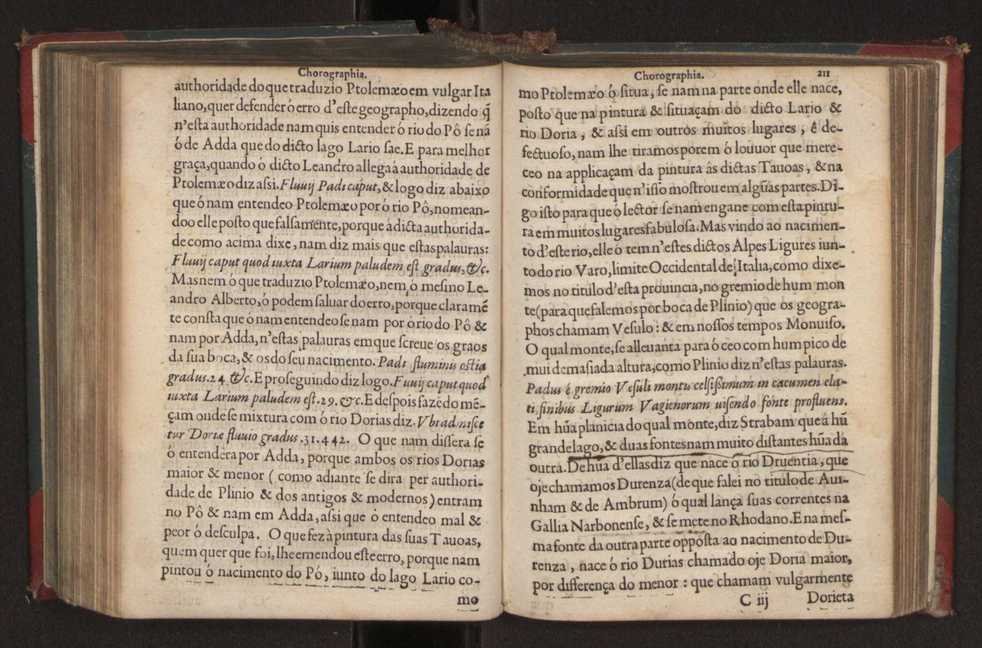 Chorographia.
authoridade do que traduzio Ptolemæo em vulgar Ita
liano, quer defender ó erro d'este geographo, dizendo q̃
n'esta authoridade nam quis entender ó rio do Pô se nã
ó de Adda que do dicto lago Lario sae. E para melhor
graça, quando ó dicto Leandro allega à authoridade de
Ptolemæo diz assi. Fluuij Padi caput, & logo diz abaixo
que ó nam entendeo Ptolemæo por ó rio Pô, nomean-
doo elle posto que falsamente, porque à dicta authorida-
de como acima dixe, nam diz mais que estas palauras:
Fluuij caput quod iuxta Larium paludem est gradus, &c.
Mas nem ó que traduzio Ptolemæo, nem ó mesmo Le-
andro Alberto, ó podem saluar do erro, porque claramẽ
te consta que ó nam entendeo se nam por ó rio do Pô &
nam por Adda, n'estas palauras em que screue os graos
da sua boca, & os do seu nacimento. Padi fluminis ostia
gradus. 24 &c. E proseguindo diz logo. Fuuij caput quod
iuxta Larium paludem est. 29. &c. E despois fazẽdo mẽ-
çam onde se mixtura com ó rio Dorias diz. Vbi ad nisce
tur Doriæ fluuio gradus. 31. 442. O que nam dissera se
ó entendera por Adda, porque ambos os rios Dorias
maior & menor ( como adiante se dira per authori-
dade de Plinio & dos antigos & modernos) entram
no Pô & nam em Adda, assi que ó entendeo mal &
peor ó desculpa. O que fez à pintura das suas Tauoas,
quem quer que foi, lhe emendou este erro, porque nam
pintou ó nacimento do Pó, iunto do lago Lario co-
mo
Chorographia. 211
mo Ptolemæo ó situa, se nam na parte onde elle nace,
posto que na pintura & situaçam do dicto Lario &
rio Doria, & assi em outros muitos lugares, é de-
fectuoso, nam lhe tiramos porem ó louuor que mere-
ceo na applicaçam da pintura âs dictas Tauoas, & na
conformidade que n'isso mostrou em algũas partes. Di-
go isto para que ó lector se nam engane com esta pintu-
ra em muitos lugares fabulosa. Mas vindo ao nacimen-
to d'este rio, elle ó tem n'estes dictos Alpes Ligures iun-
to do rio Varo, limite Occidental de Italia, como dixe-
mos no titulo d'esta prouincia, no gremio de hum mon
te (para que falemos por boca de Plinio) que os geogra-
phos chamam Vesulo: & em nossos tempos Monuiso.
O qual monte, se alleuanta para ó ceo com hum pico de
mui demasiada altura, como Plinio diz n'estas palauras.
Padus é gremio Vesuli montis celsissimum in cacumen ela-
ti finibus Ligurum Vagienorum uisendo fonte profluens.
Em hũa planicia do qual monte, diz Strabam que à hũ
grande lago, & duas fontes nam muito distantes hũa da
outra. De hũa d'ellas diz que nace ó rio Druentia, que
oje chamamos Durenza (de que falei no titulo de Aui-
nham & de Ambrum) ó qual lança suas correntes na
Gallia Narbonense, & se mete no Rhodano. E na mes-
ma fonte da outra parte opposta ao nacimento de Du-
renza, nace ó rio Durias chamado oje Doria maior,
por differença do menor: que chamam vulgarmente
C iij Dorieta